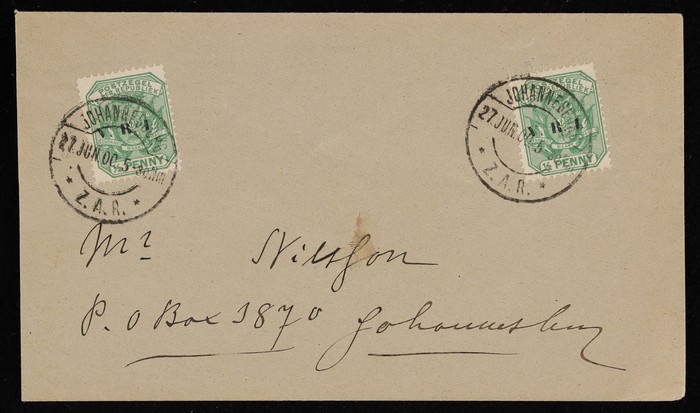 POSTZEGEL
JOHANNESBURG
V R I
27 JUN 00
½ PENNY
Z.A.R.
POSTZEGEL
JOHANNESBURG
V R I
27 JUN 00
½ PENNY
Z.A.R.
Mr
P. O Box 1870 Johannesburg